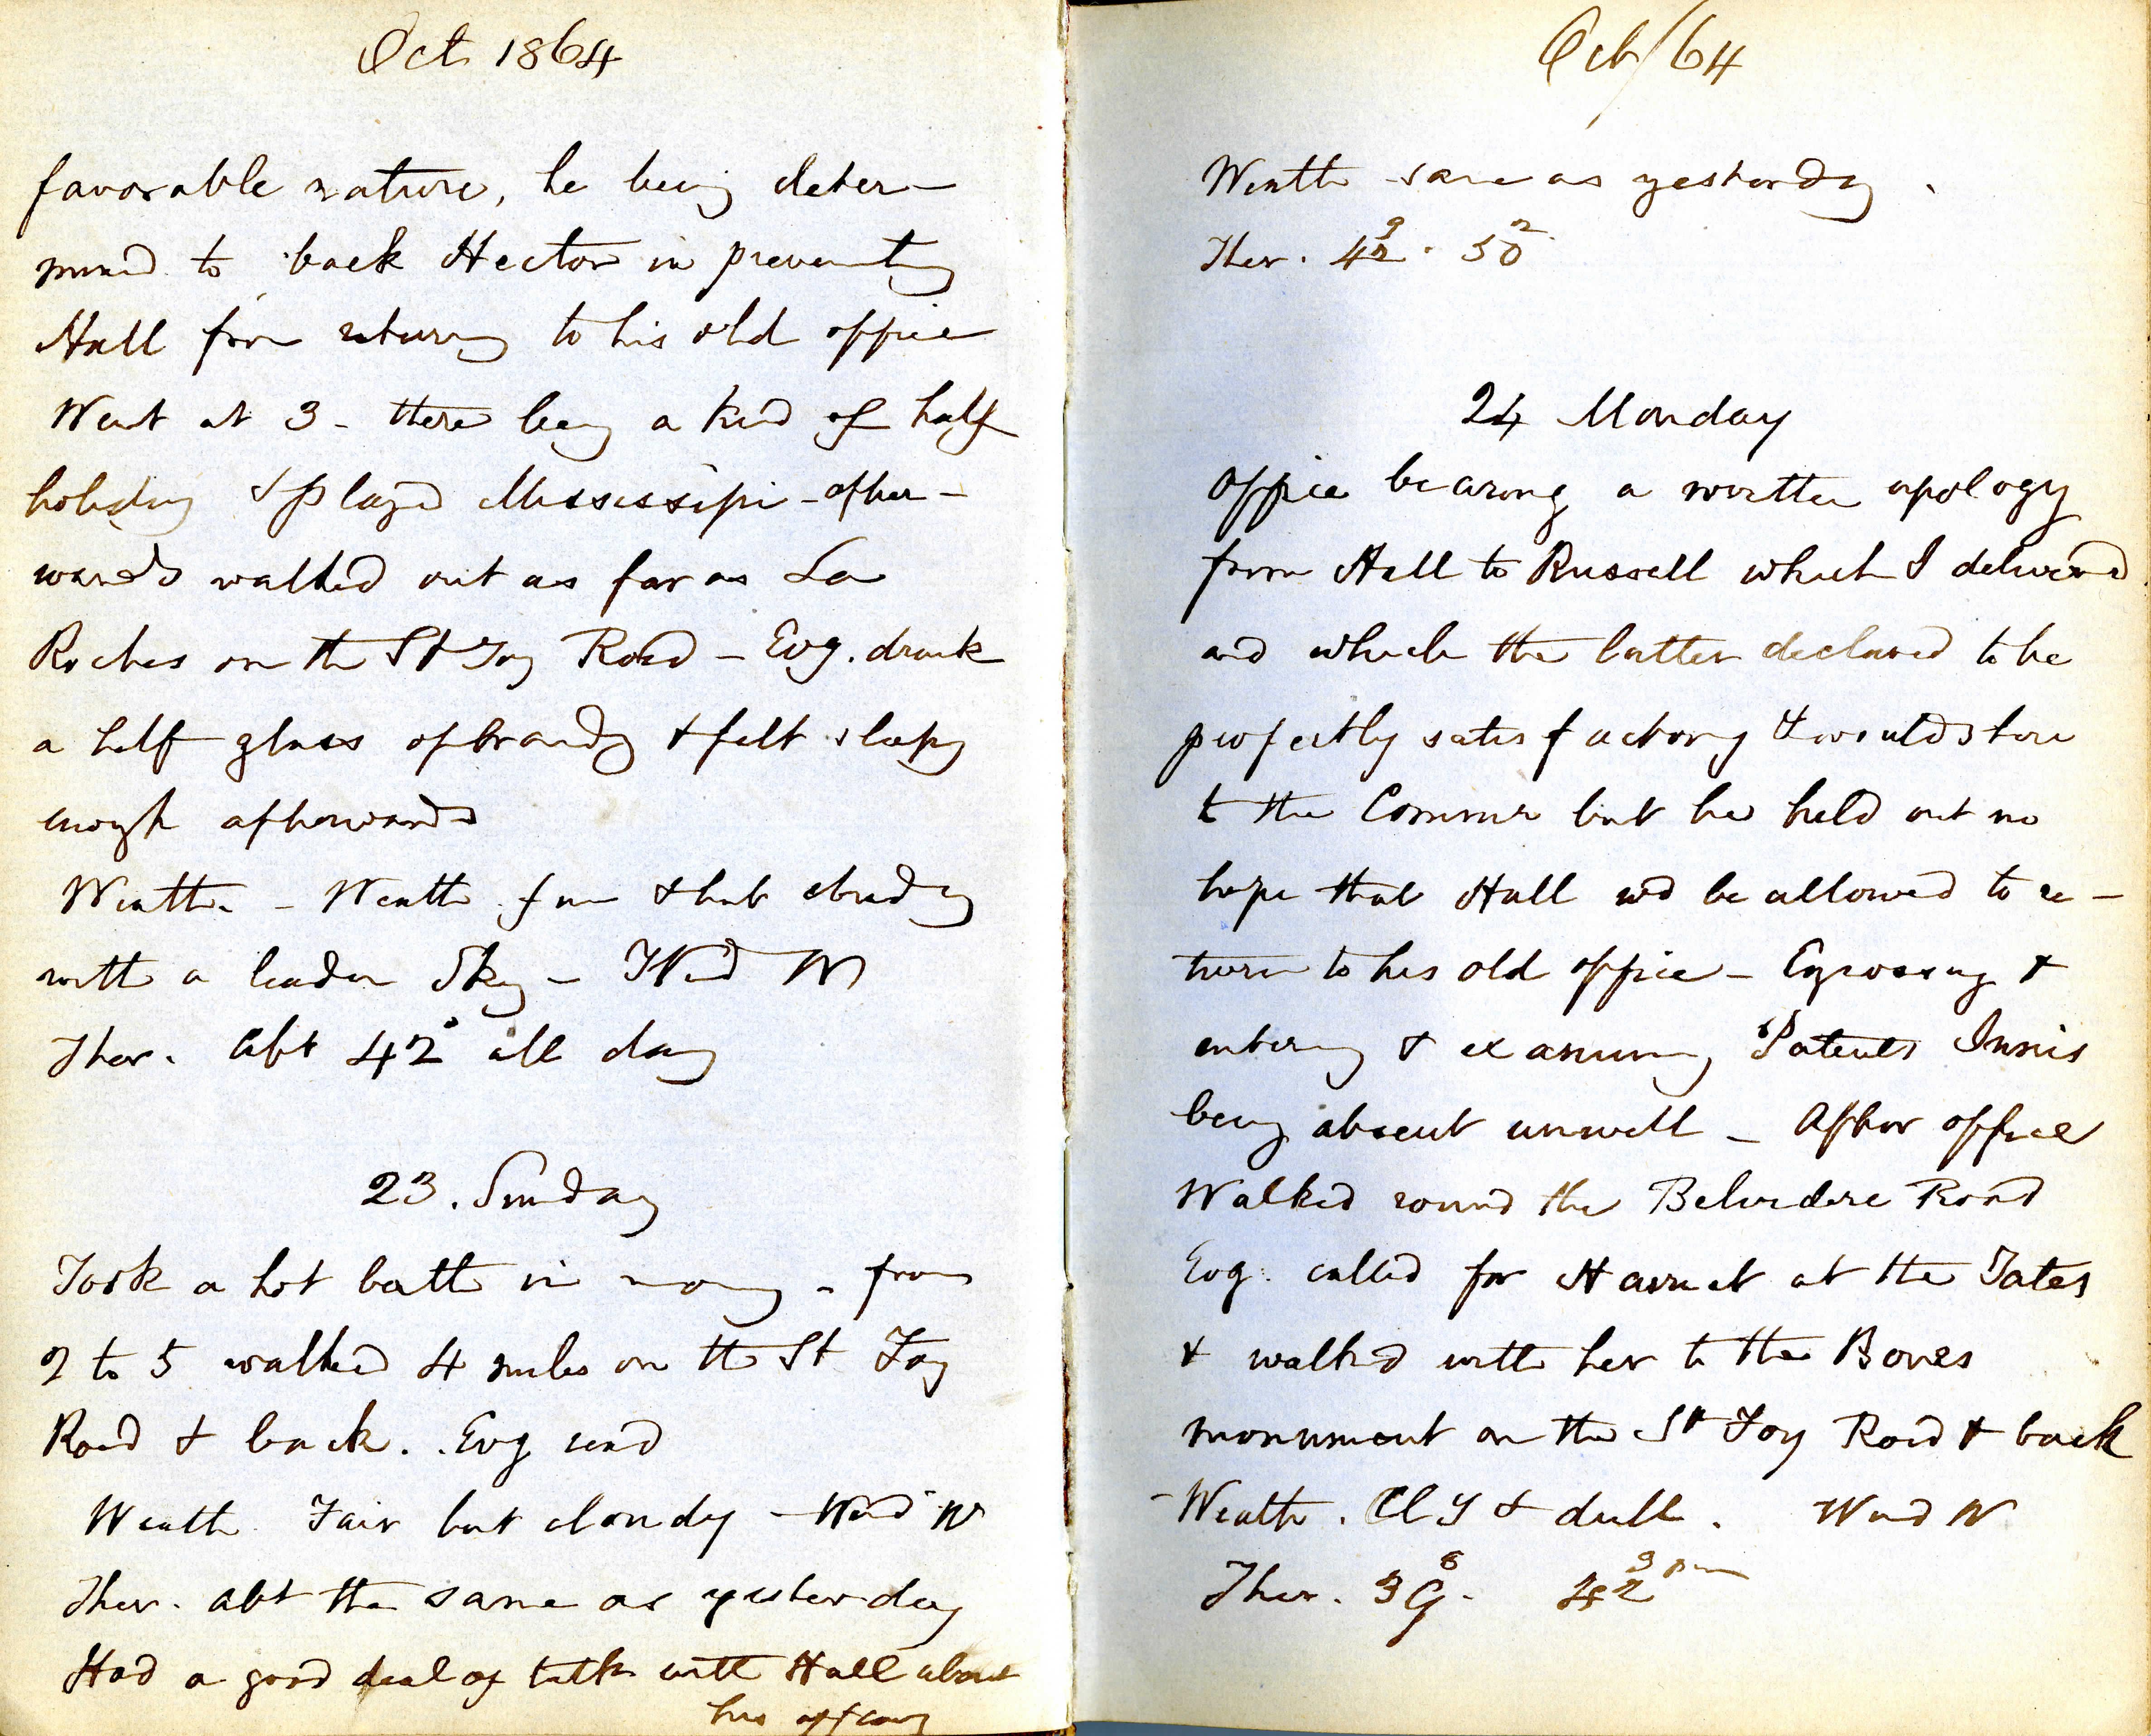 Oct 1864
favorable nature, he being deter-
mined to back Hector in preventing
Hall from returning to his old office
Went at 3 - there being a kind of half
holiday & played Mississipi - after-
wards walked out as far as La
Roches on the St Foy Road - Evg. drank
a half glass of brandy & felt sleepy
enough afterwards
Weather - Weath fine & but cloudy
with a leaden Sky - Wind W
Ther. abt 42° all day
23. Sunday
Took a hot bath in morng - from
2 to 5 walked 4 miles on the St Foy
Road & back. Evg read
Weath. Fair but cloudy - Wind W
Ther. abt the same as yesterday
Had a good deal of talk with Hall about
his affairs
Oct/64
Weath same as yesterday.
Ther. 42 9. 50 2
24 Monday
Office bearing a written apology
from Hall to Russell which I delivered
and which the latter declared to be
perfectly satisfactory & would show
to the Commr but he held out no
hope that Hall wd be allowed to re-
turn to his old office - Egrossing &
entering & examining Patents Innis
being absent unwell - After office
Walked round the Belvedere Road
Evg. called for Harriet at the Tates
& walked with her to the Boves
monument on the St Foy Road & back
- Weath. Cly & dull. Wind W
Ther. 39 8. 42 9 pm